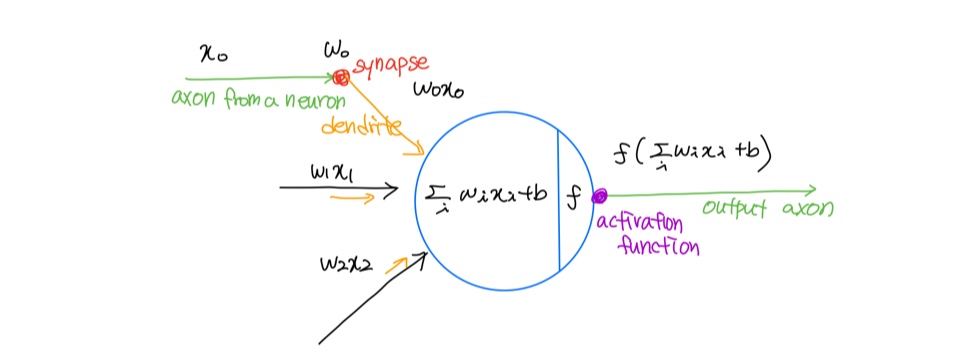 x₀
w₀
synapse
axon from a neuron
w₀x₀
dendrite
w₁x₁
w₂x₂
Σᵢ wᵢxᵢ+b
f
f(Σᵢ wᵢxᵢ+b)
output axon
activation
function